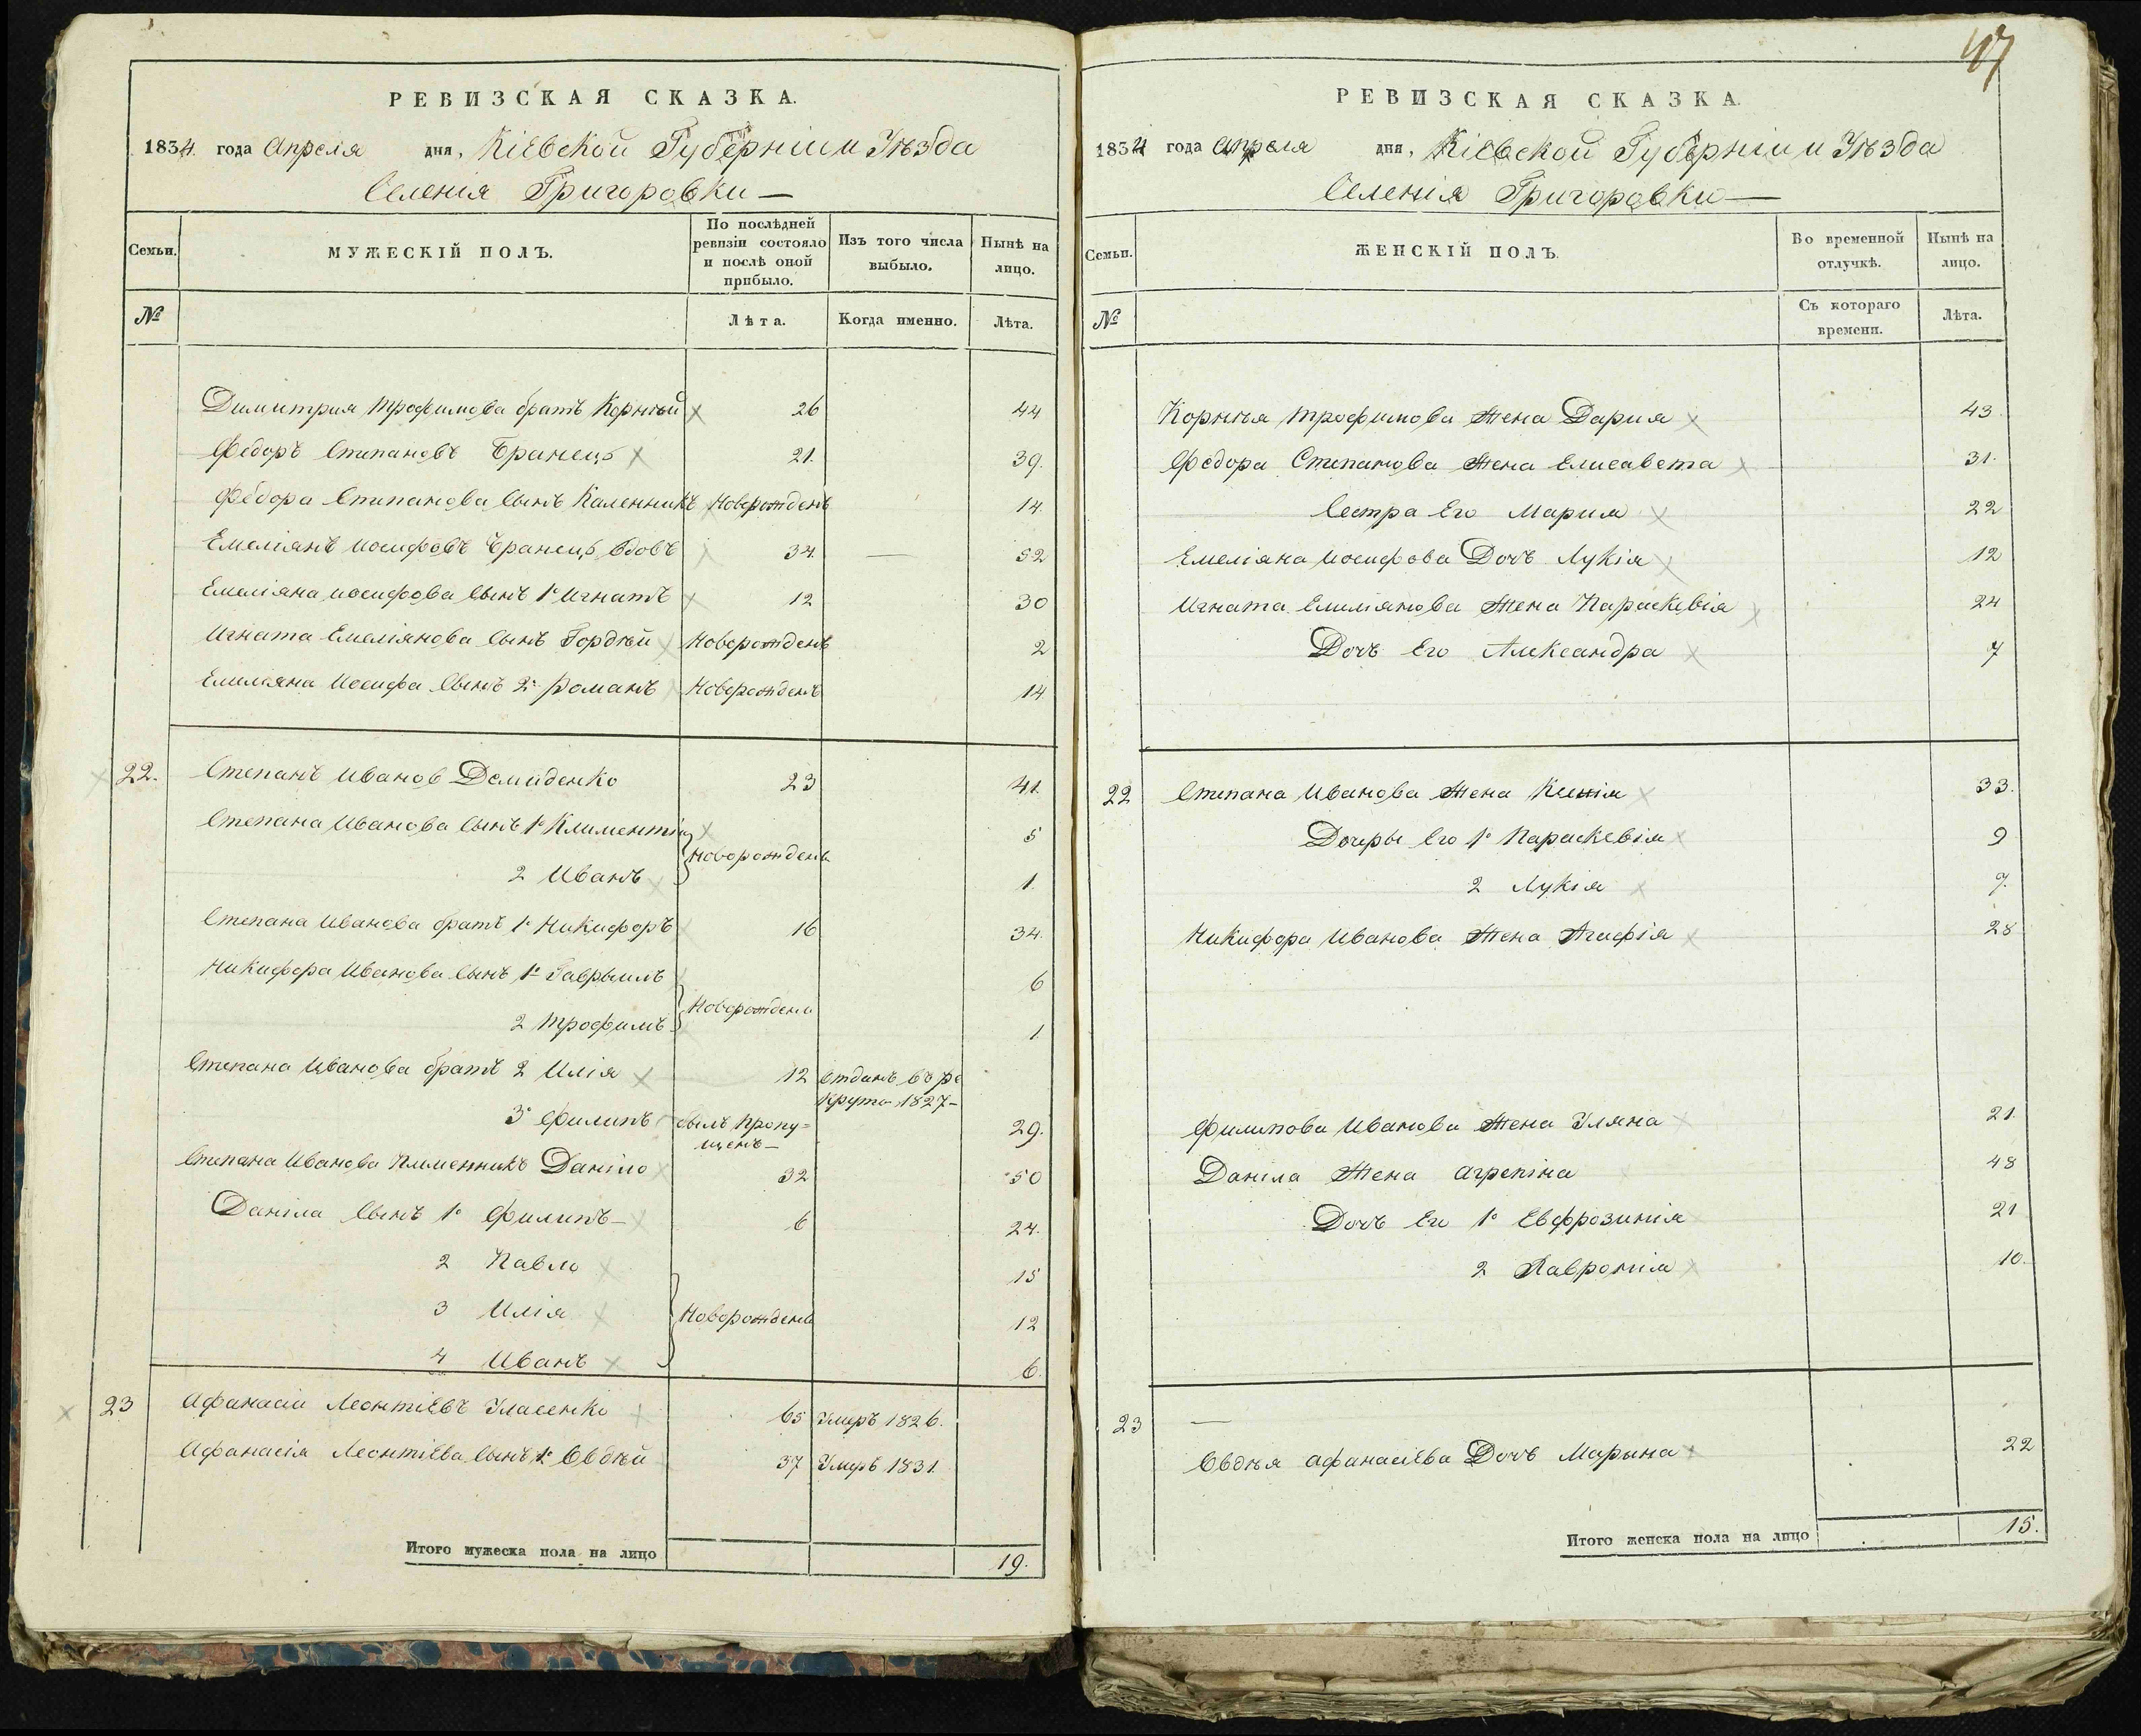 РЕВИЗСКАЯ СКАЗКА.
1834. года Апреля дня, Кіевской Губерніи и Уѣзда
Селенія Григоровки —
Семьи.
МУЖЕСКІЙ ПОЛЪ.
По послѣдней ревизіи состояло и послѣ оной прибыло.
Изъ того числа выбыло.
Нынѣ на лицо.
№
Лѣта.
Когда именно.
Лѣта.
Димитрия Трофимова братъ Корнѣй 26 44
Федоръ Степановъ 21. 39.
Федора Степанова сынъ Каленникъ Новорожденъ 14
Емеліянъ Иосифовъ вдовъ 34. — 52
Емеліяна Иосифова сынъ 1й Игнатъ 12 30
Игната Емеліянова сынъ Гордѣй Новорожденъ 2
Емеліяна Иосифа сынъ 2й Романъ Новорожденъ 14
22. Степанъ Иванов Демиденко 23 41.
Степана Иванова сынъ 1й Климентій 5
Новорожденъ
2 Иванъ 1.
Степана Иванова братъ 1й Никифоръ 16 34.
Никифора Иванова сынъ 1й Гаврыилъ 6
Новорожденъ
2 Трофимъ 1.
Степана Иванова братъ 2 Илія 12 Отданъ въ ре
крута 1827 –
3й Филипъ былъ пропу= 29.
щенъ –
Степана Иванова племенникъ Даніло 32 50
Даніла сынъ 1й Филипъ – 6 24.
2 Павло 15
3 Илія Новорожденъ 12
4 Иванъ 6.
23 Афанасій Леонтіевъ Уласенко 65 Умеръ 1826.
Афанасія Леонтіева сынъ 1й Овдѣй 37 Умеръ 1831.
Итого мужеска пола на лицо 19.
47
РЕВИЗСКАЯ СКАЗКА.
1834 года Апреля дня, Кіевской Губерніи и Уѣзда
Селенія Григоровки —
Семьи.
ЖЕНСКІЙ ПОЛЪ.
Во временной отлучкѣ.
Нынѣ на лицо.
№
Съ котораго времени.
Лѣта.
Корнѣя Трофимова жена Дария 43.
Федора Степанова жена Елисавета 31.
Сестра Его Мария 22
Емеліяна Иосифова Дочь Лукія 12
Игната Емеліянова жена Параскевія 24
Дочь Его Александра 7
22 Степана Иванова жена Ксенія 33.
Дочеры Его 1й Параскевія 9
2 Лукія 7.
Никифора Иванова жена Агафія 28
Филипова Иванова жена Уляна 21.
Даніла жена Агрепіна 48
Дочь Его 1й Евфрозинія 21
2 10.
23 —
Овдѣя Афанасіева Дочь Марына 22
Итого женска пола на лицо 15.